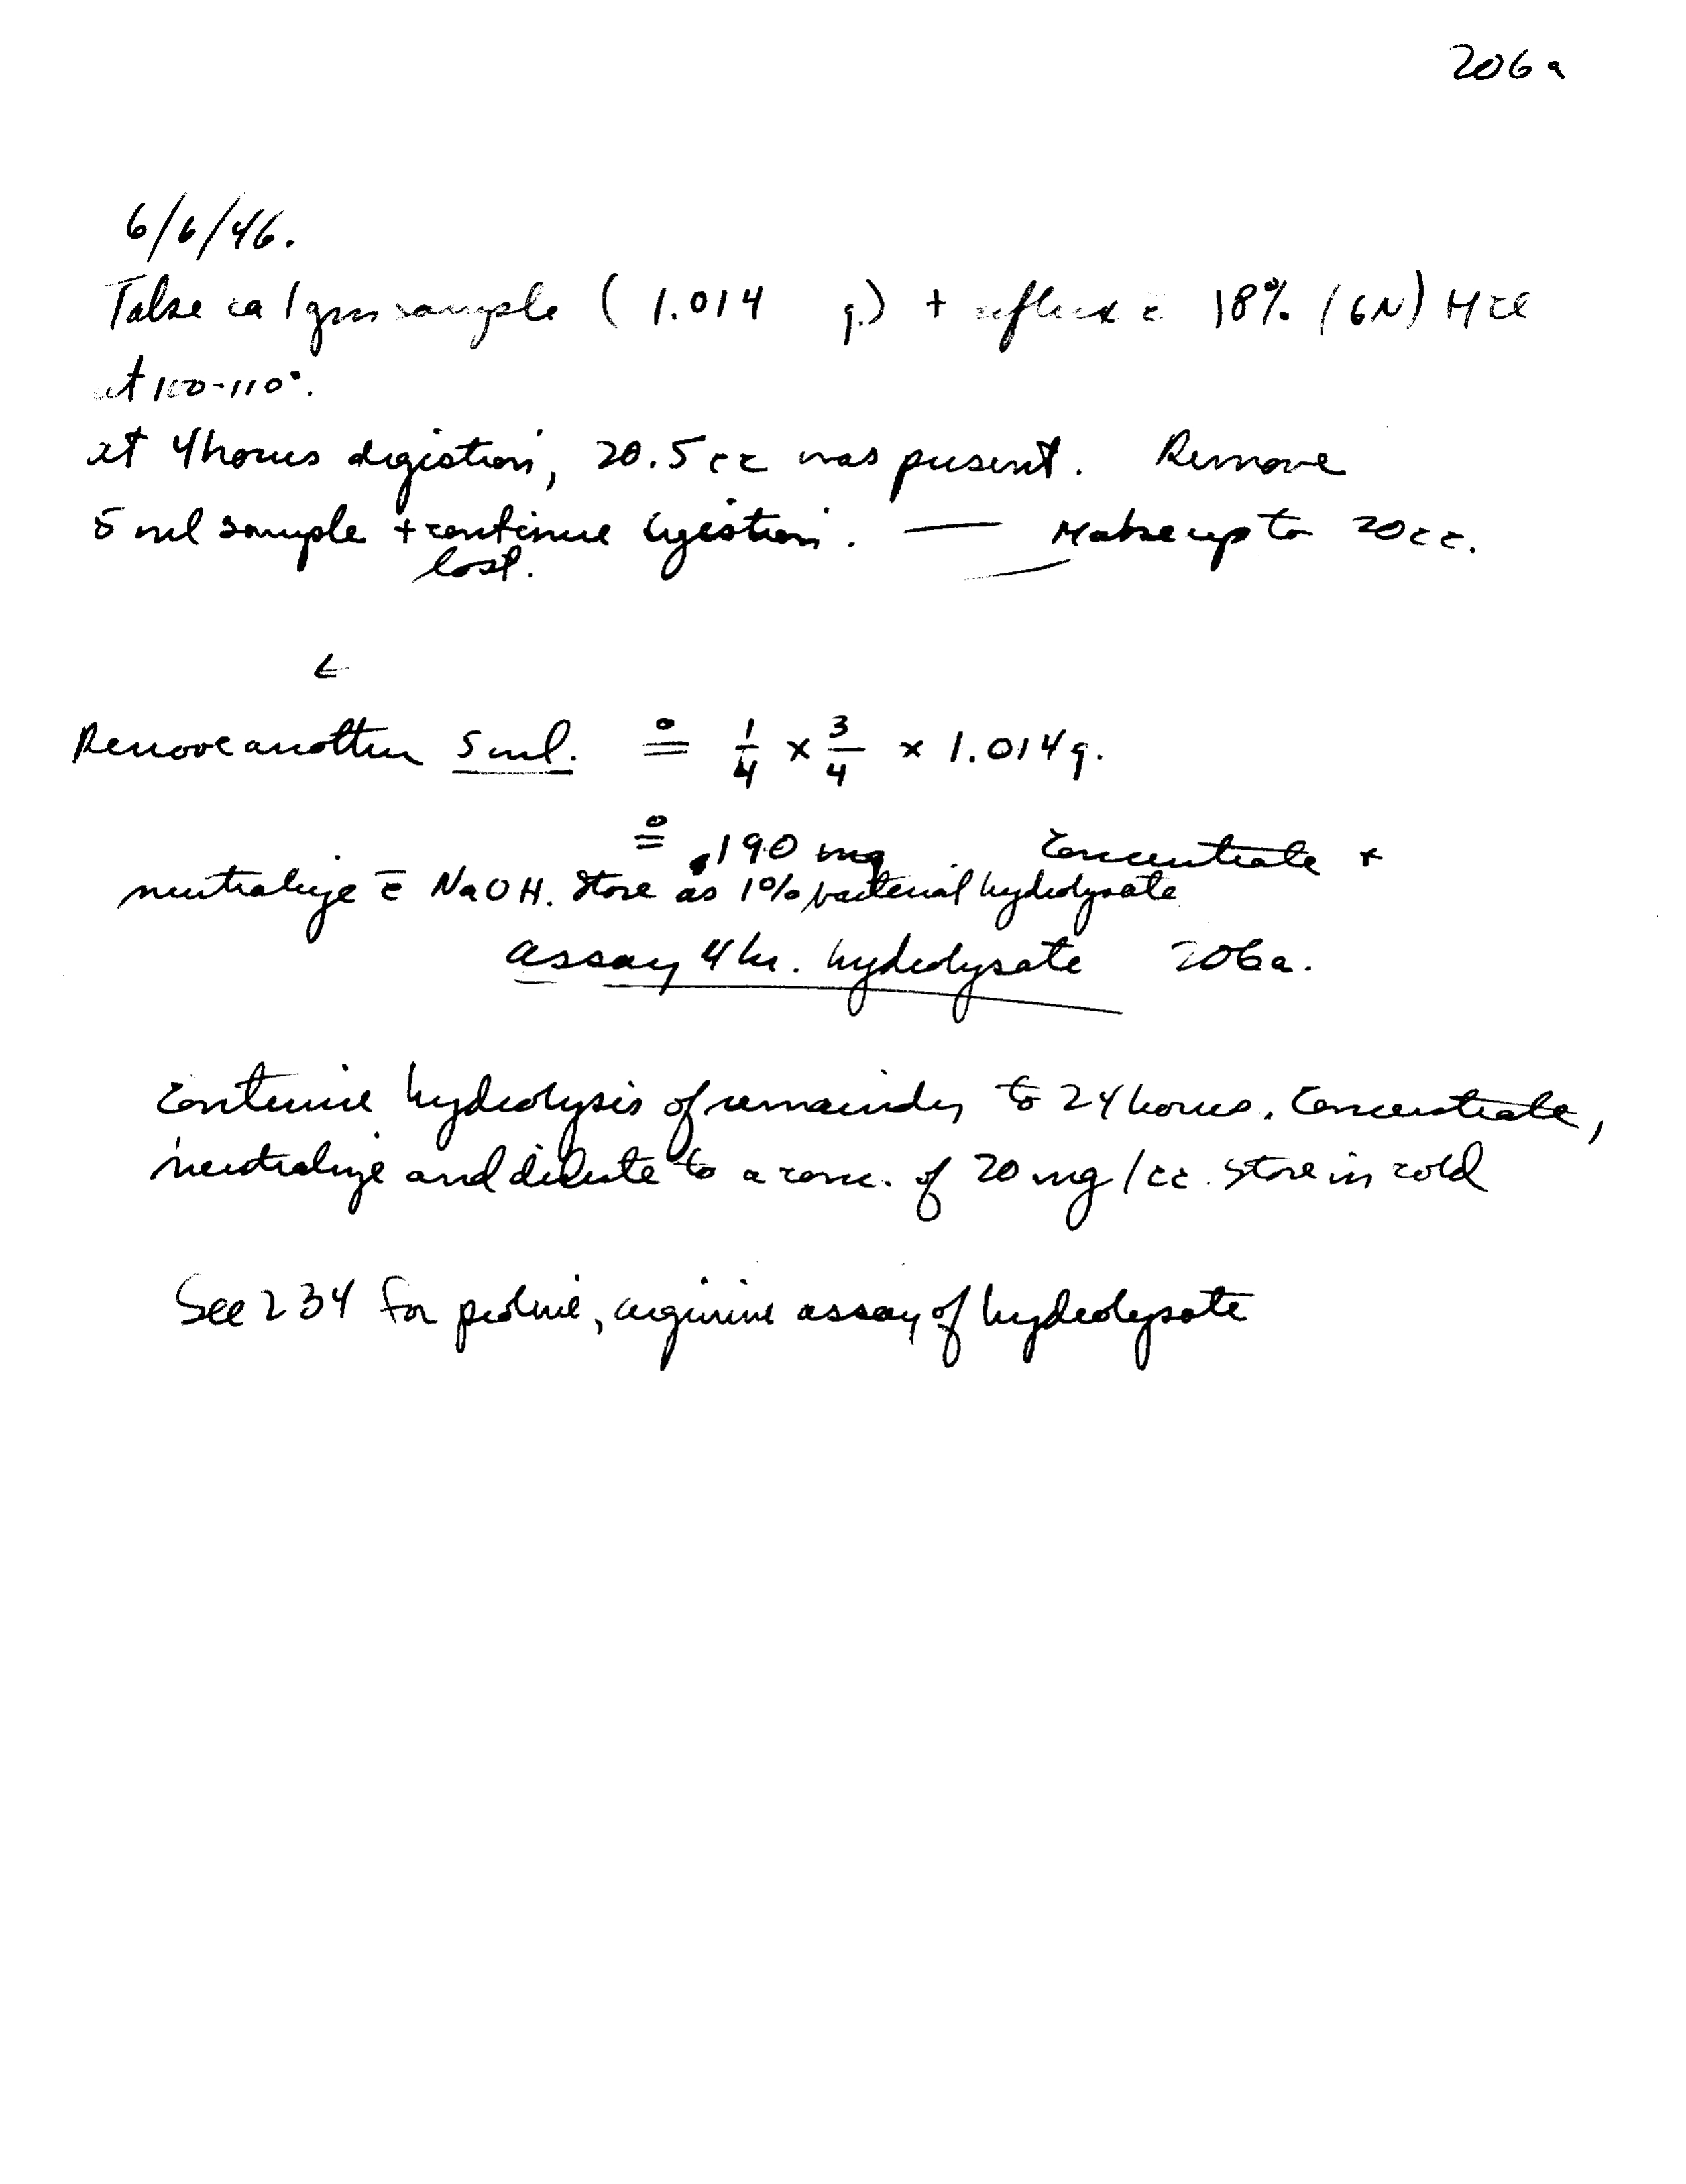 206a
6/6/46.
Take ca 1 gm sample ( 1.014 g.) + reflux c̄ 18% (6N) HCl
at 100-110°.
at 4 hours digestion, 20.5 cc was present. Remove
5 ml sample + continue digestion. — Make up to 20 cc.
lost.
Remove another 5 ml. ≗ 1/4 x 3/4 x 1.014 g.
≗ .190 mg Concentrate +
neutralize c̄ NaOH. Store as 1% bacterial hydrolysate
Assay 4 hr. hydrolysate 206a.
Continue hydrolysis of remainder to 24 hours. Concentrate,
neutralize and dilute to a conc. of 20 mg/cc. Store in cold
See 234 for proline, arginine assay of hydrolysate